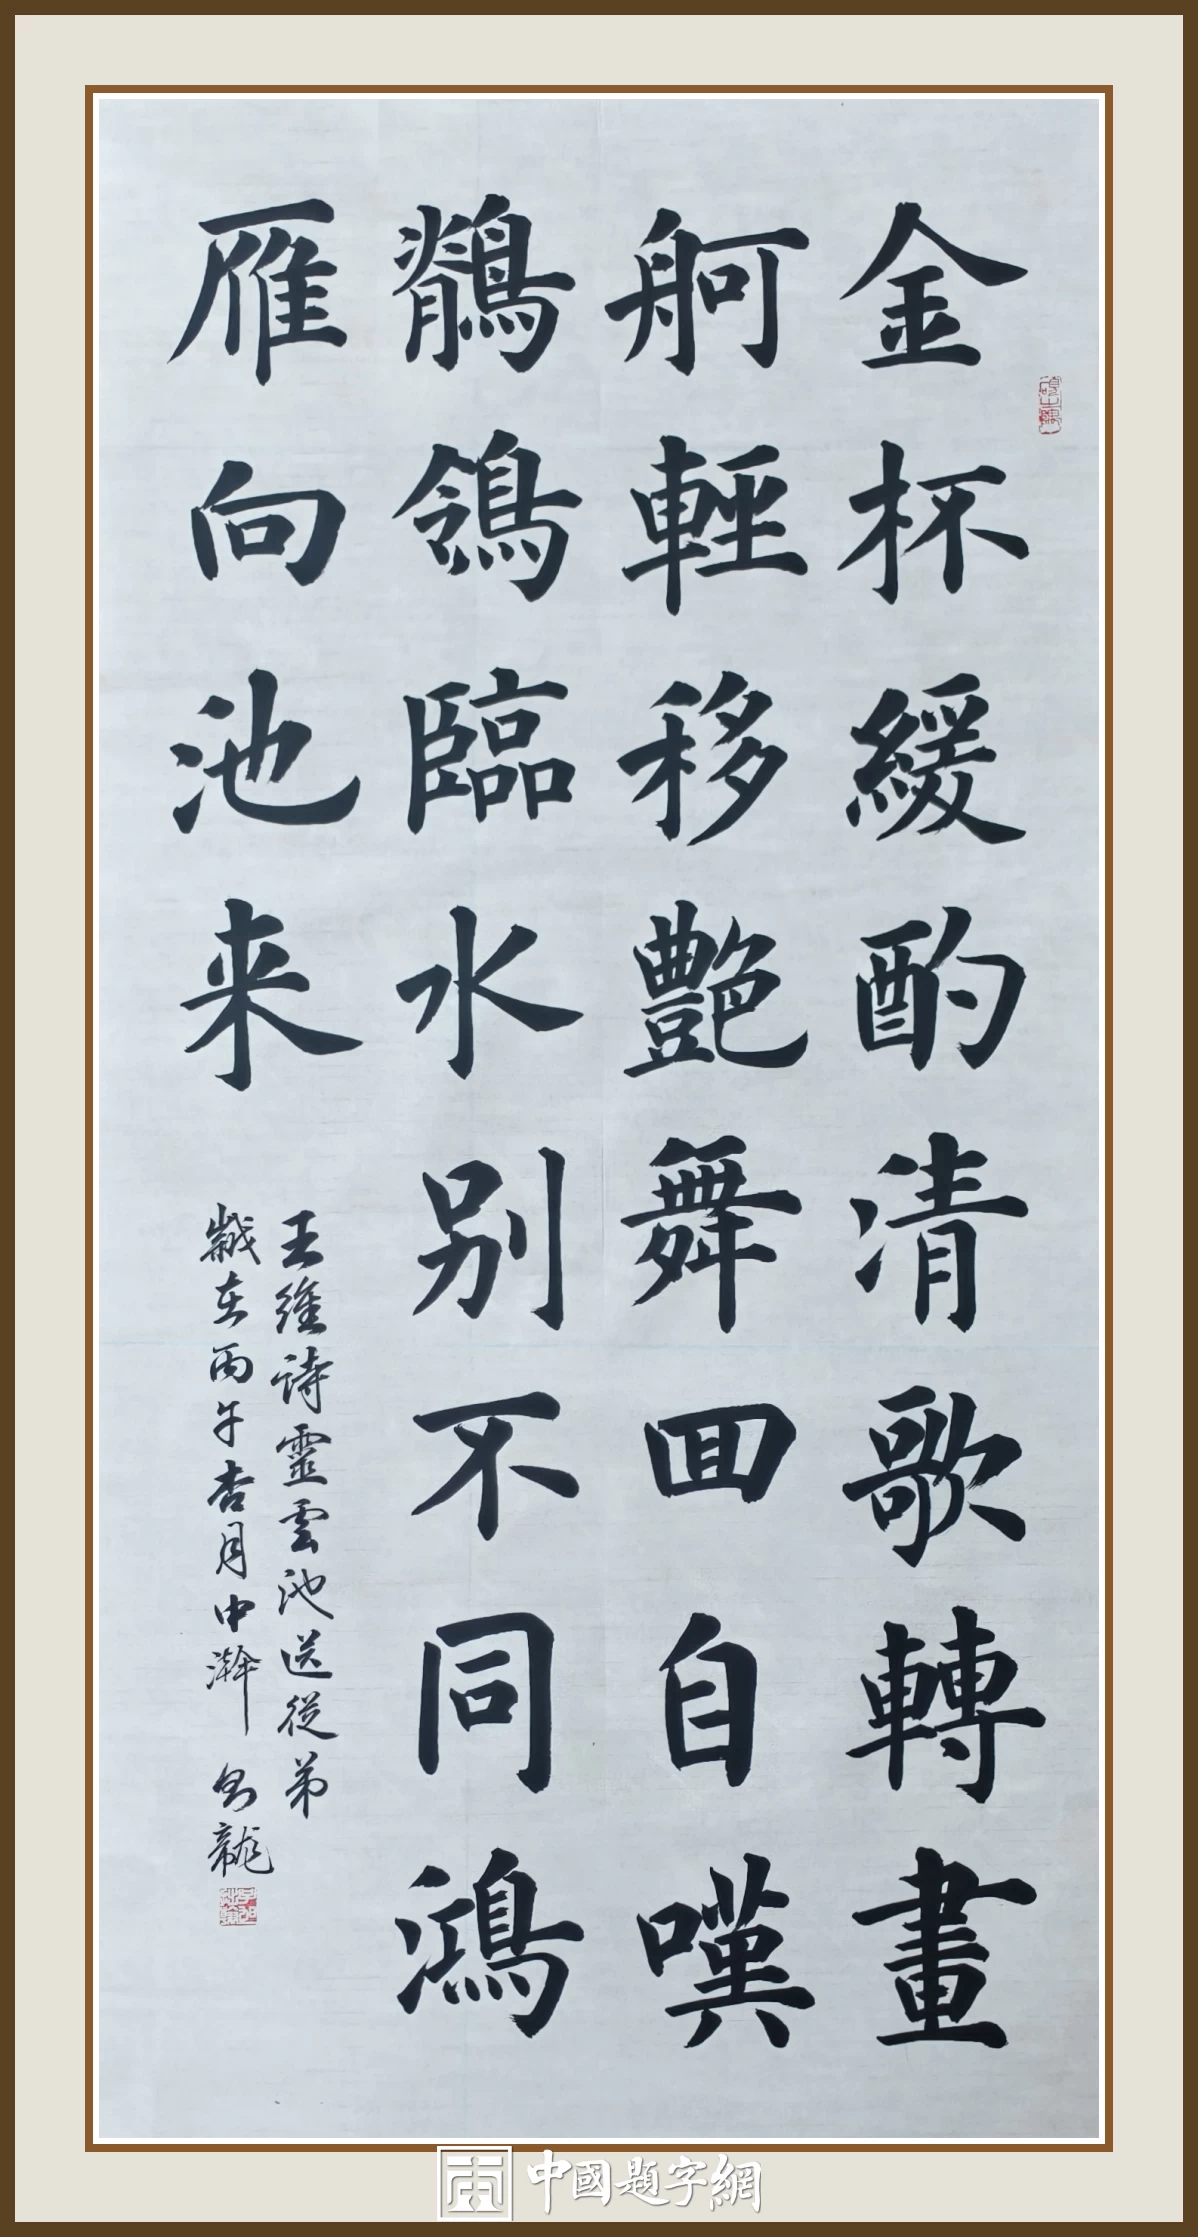 金杯緩酌清歌轉畫
舸輕移艷舞回自嘆
鶺鴒臨水别不同鴻
雁向池来
王維詩靈雲池送從弟
歲在丙午杏月中澣 剑龍
中國題字網